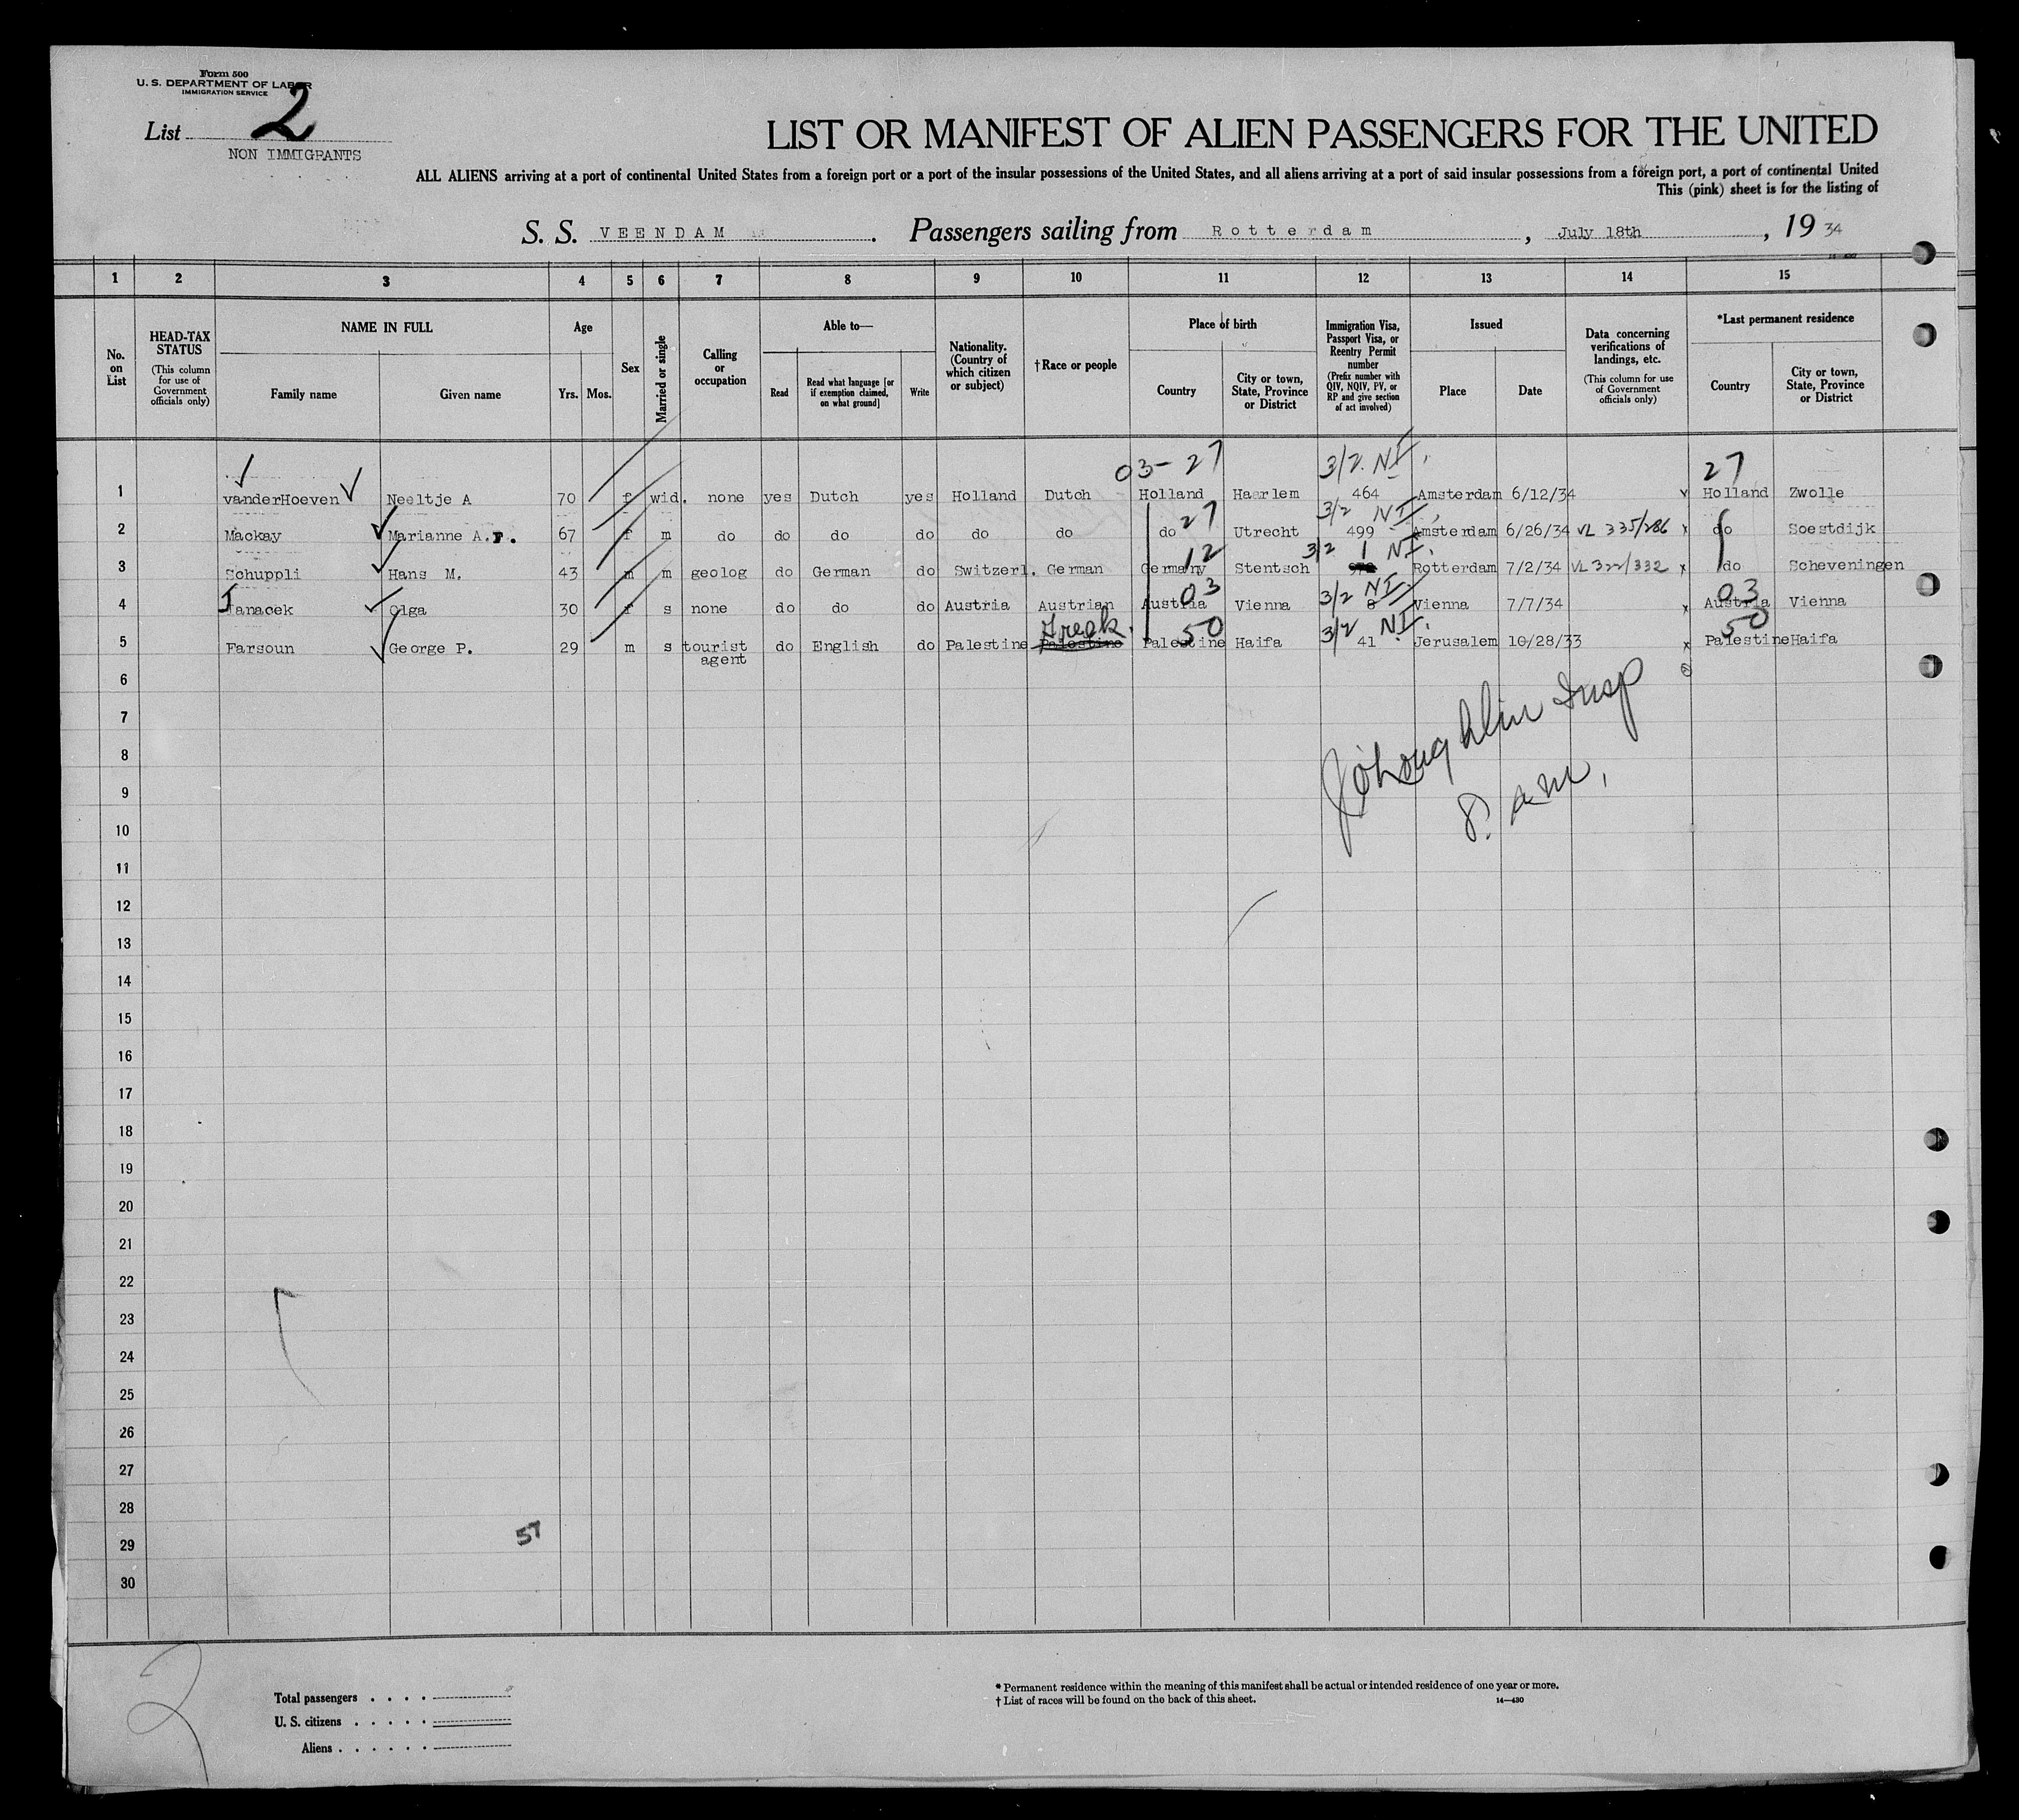 Form 500
U. S. DEPARTMENT OF LABOR
IMMIGRATION SERVICE
List 2
NON IMMIGRANTS
LIST OR MANIFEST OF ALIEN PASSENGERS FOR THE UNITED
ALL ALIENS arriving at a port of continental United States from a foreign port or a port of the insular possessions of the United States, and all aliens arriving at a port of said insular possessions from a foreign port, a port of continental United
This (pink) sheet is for the listing of
S. S. VEENDAM . Passengers sailing from Rotterdam , July 18th , 19 34
1 2 3 4 5 6 7 8 9 10 11 12 13 14 15
No. on List
HEAD-TAX STATUS (This column for use of Government officials only)
NAME IN FULL Family name Given name
Age Yrs. Mos.
Sex
Married or single
Calling or occupation
Able to— Read Read what language [or if exemption claimed, on what ground] Write
Nationality. (Country of which citizen or subject)
† Race or people
Place of birth Country City or town, State, Province or District
Immigration Visa, Passport Visa, or Reentry Permit number (Prefix number with QIV, NQIV, PV, or RP and give section of act involved)
Issued Place Date
Data concerning verifications of landings, etc. (This column for use of Government officials only)
*Last permanent residence Country City or town, State, Province or District
03-27 3/2 NI 27
1 vanderHoeven Neeltje A 70 f wid. none yes Dutch yes Holland Dutch Holland Haarlem 464 Amsterdam 6/12/34 Holland Zwolle
27 3/2 NI
2 Mackay Marianne A.F. 67 f m do do do do do do do Utrecht 499 Amsterdam 6/26/34 VL 335/286 x do Soestdijk
12 3/2 1 NI.
3 Schuppli Hans M. 43 m m geolog do German do Switzerl. German Germany Stentsch Rotterdam 7/2/34 VL 322/332 x do Scheveningen
03 3/2 NI. 03
4 Janacek Olga 30 f s none do do do Austria Austrian Austria Vienna 8 Vienna 7/7/34 x Austria Vienna
Greek 50 3/2 NI. 50
5 Farsoun George P. 29 m s tourist agent do English do Palestine Palestine Palestine Haifa 41 Jerusalem 10/28/33 x Palestine Haifa
6
7
8
9
10
11
12
13
14
15
16
17
18
19
20
21
22
23
24
25
26
27
28
29
30
57
2
Total passengers . . . .
U. S. citizens . . . . .
Aliens . . . . . .
* Permanent residence within the meaning of this manifest shall be actual or intended residence of one year or more.
† List of races will be found on the back of this sheet. 14—430